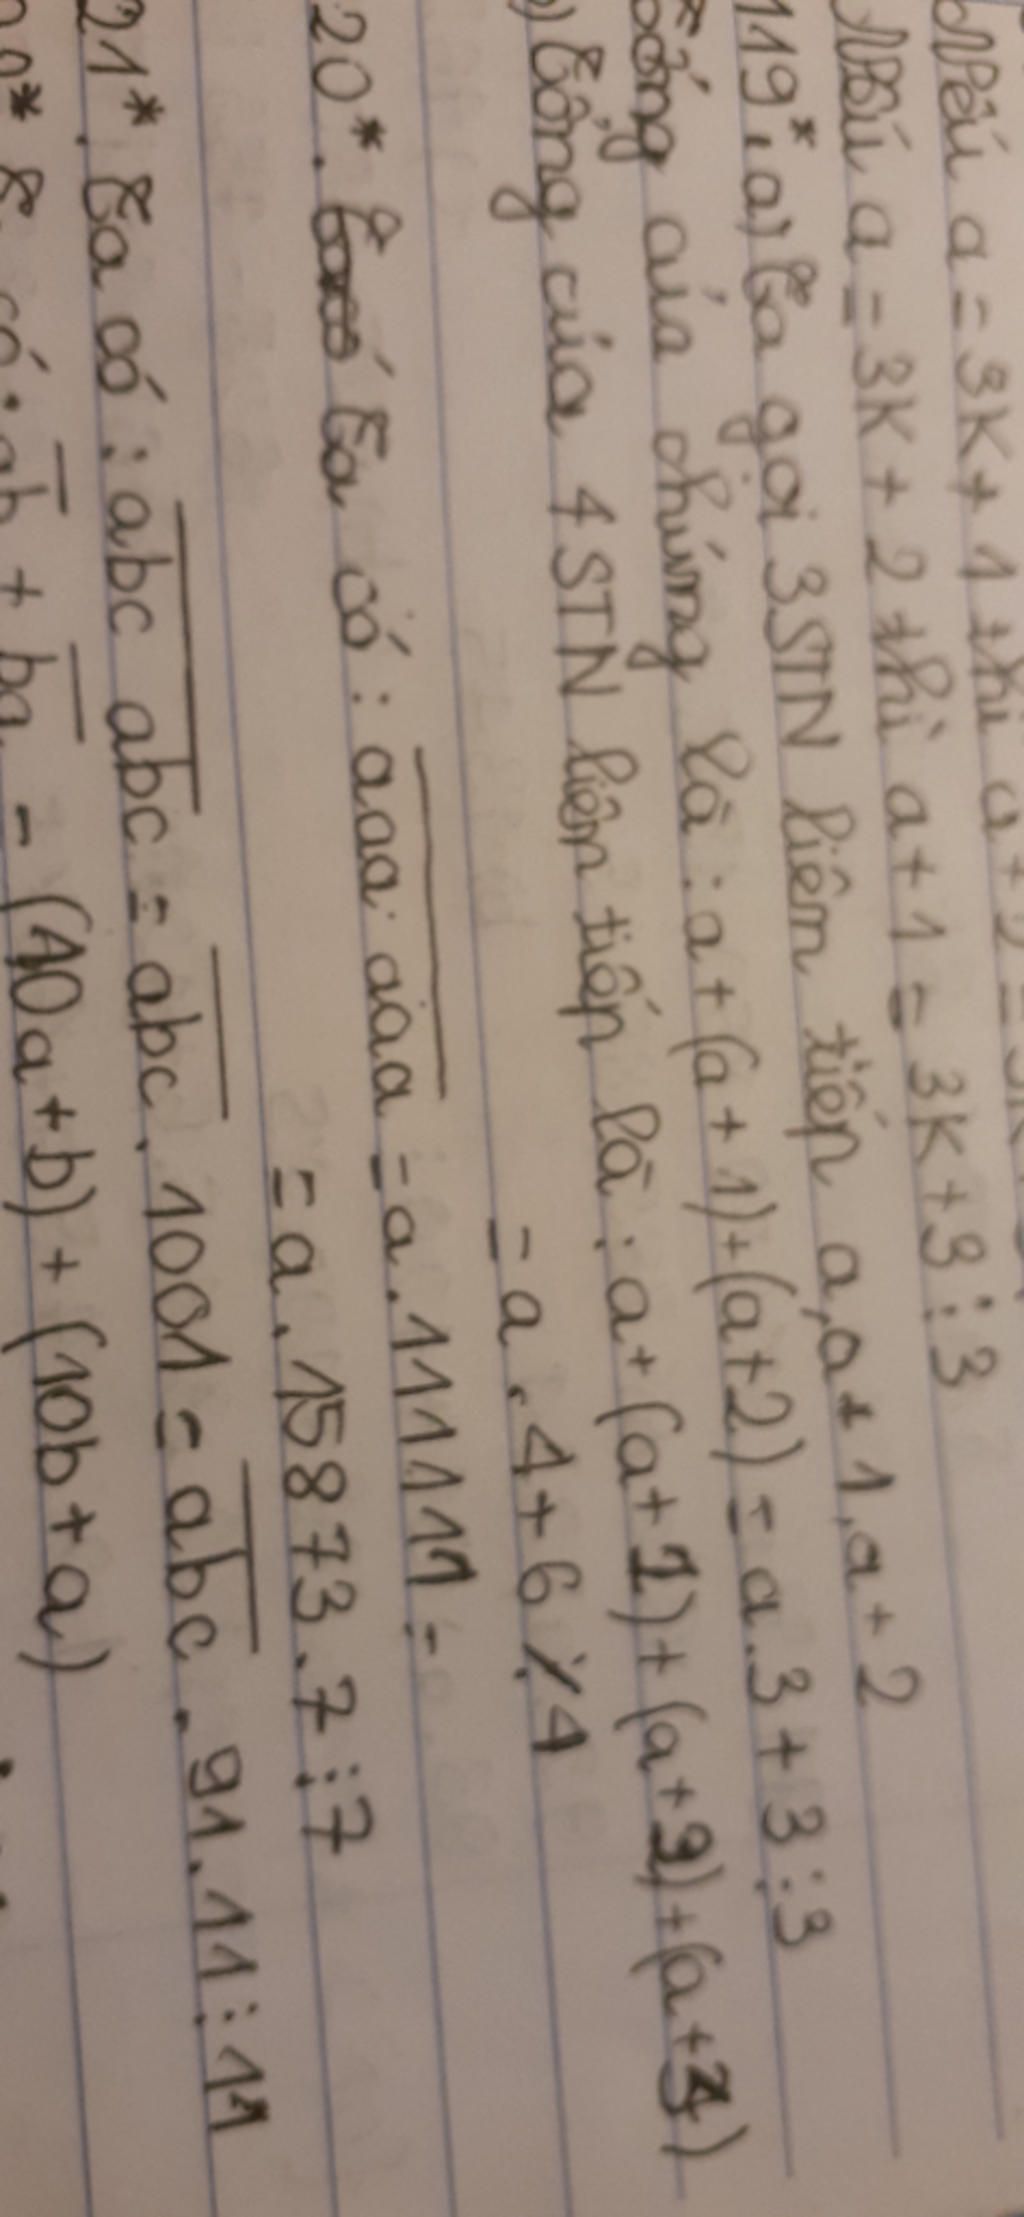 Nếu a = 3K + 1 thì a + 2 = 3K
Nếu a = 3K + 2 thì a + 1 = 3K + 3 ⋮ 3
119*. a) Ta gọi 3 STN liên tiếp a, a + 1, a + 2
Tổng của chúng là : a + (a + 1) + (a + 2) = a . 3 + 3 ⋮ 3
b) Tổng của 4 STN liên tiếp là : a + (a + 1) + (a +
= a . 4 + 6 ⋮̸ 4
20*. Ta có : aaa aaa = a . 111111 =
= a . 15873 . 7 ⋮ 7
21*. Ta có : abc abc = abc . 1001 = abc . 91 . 11 ⋮ 11
có : ab + ba = (10a + b) + (10b + a)